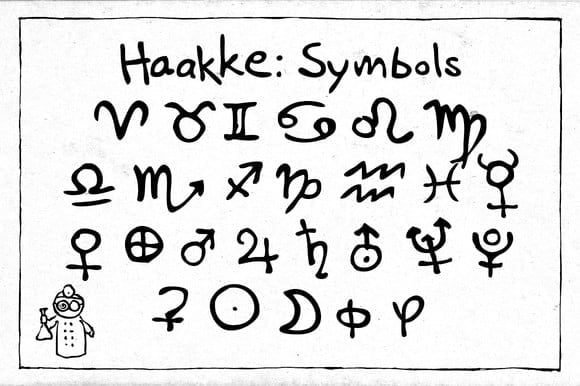 Haakke: Symbols
♈ ♉ ♊ ♋ ♌ ♍
♎ ♏ ♐ ♑ ♒ ♓ ☿
♀ ⊕ ♂ ♃ ♄ ⛢ ♆ ⯓
⚳ ☉ ☽ φ φ